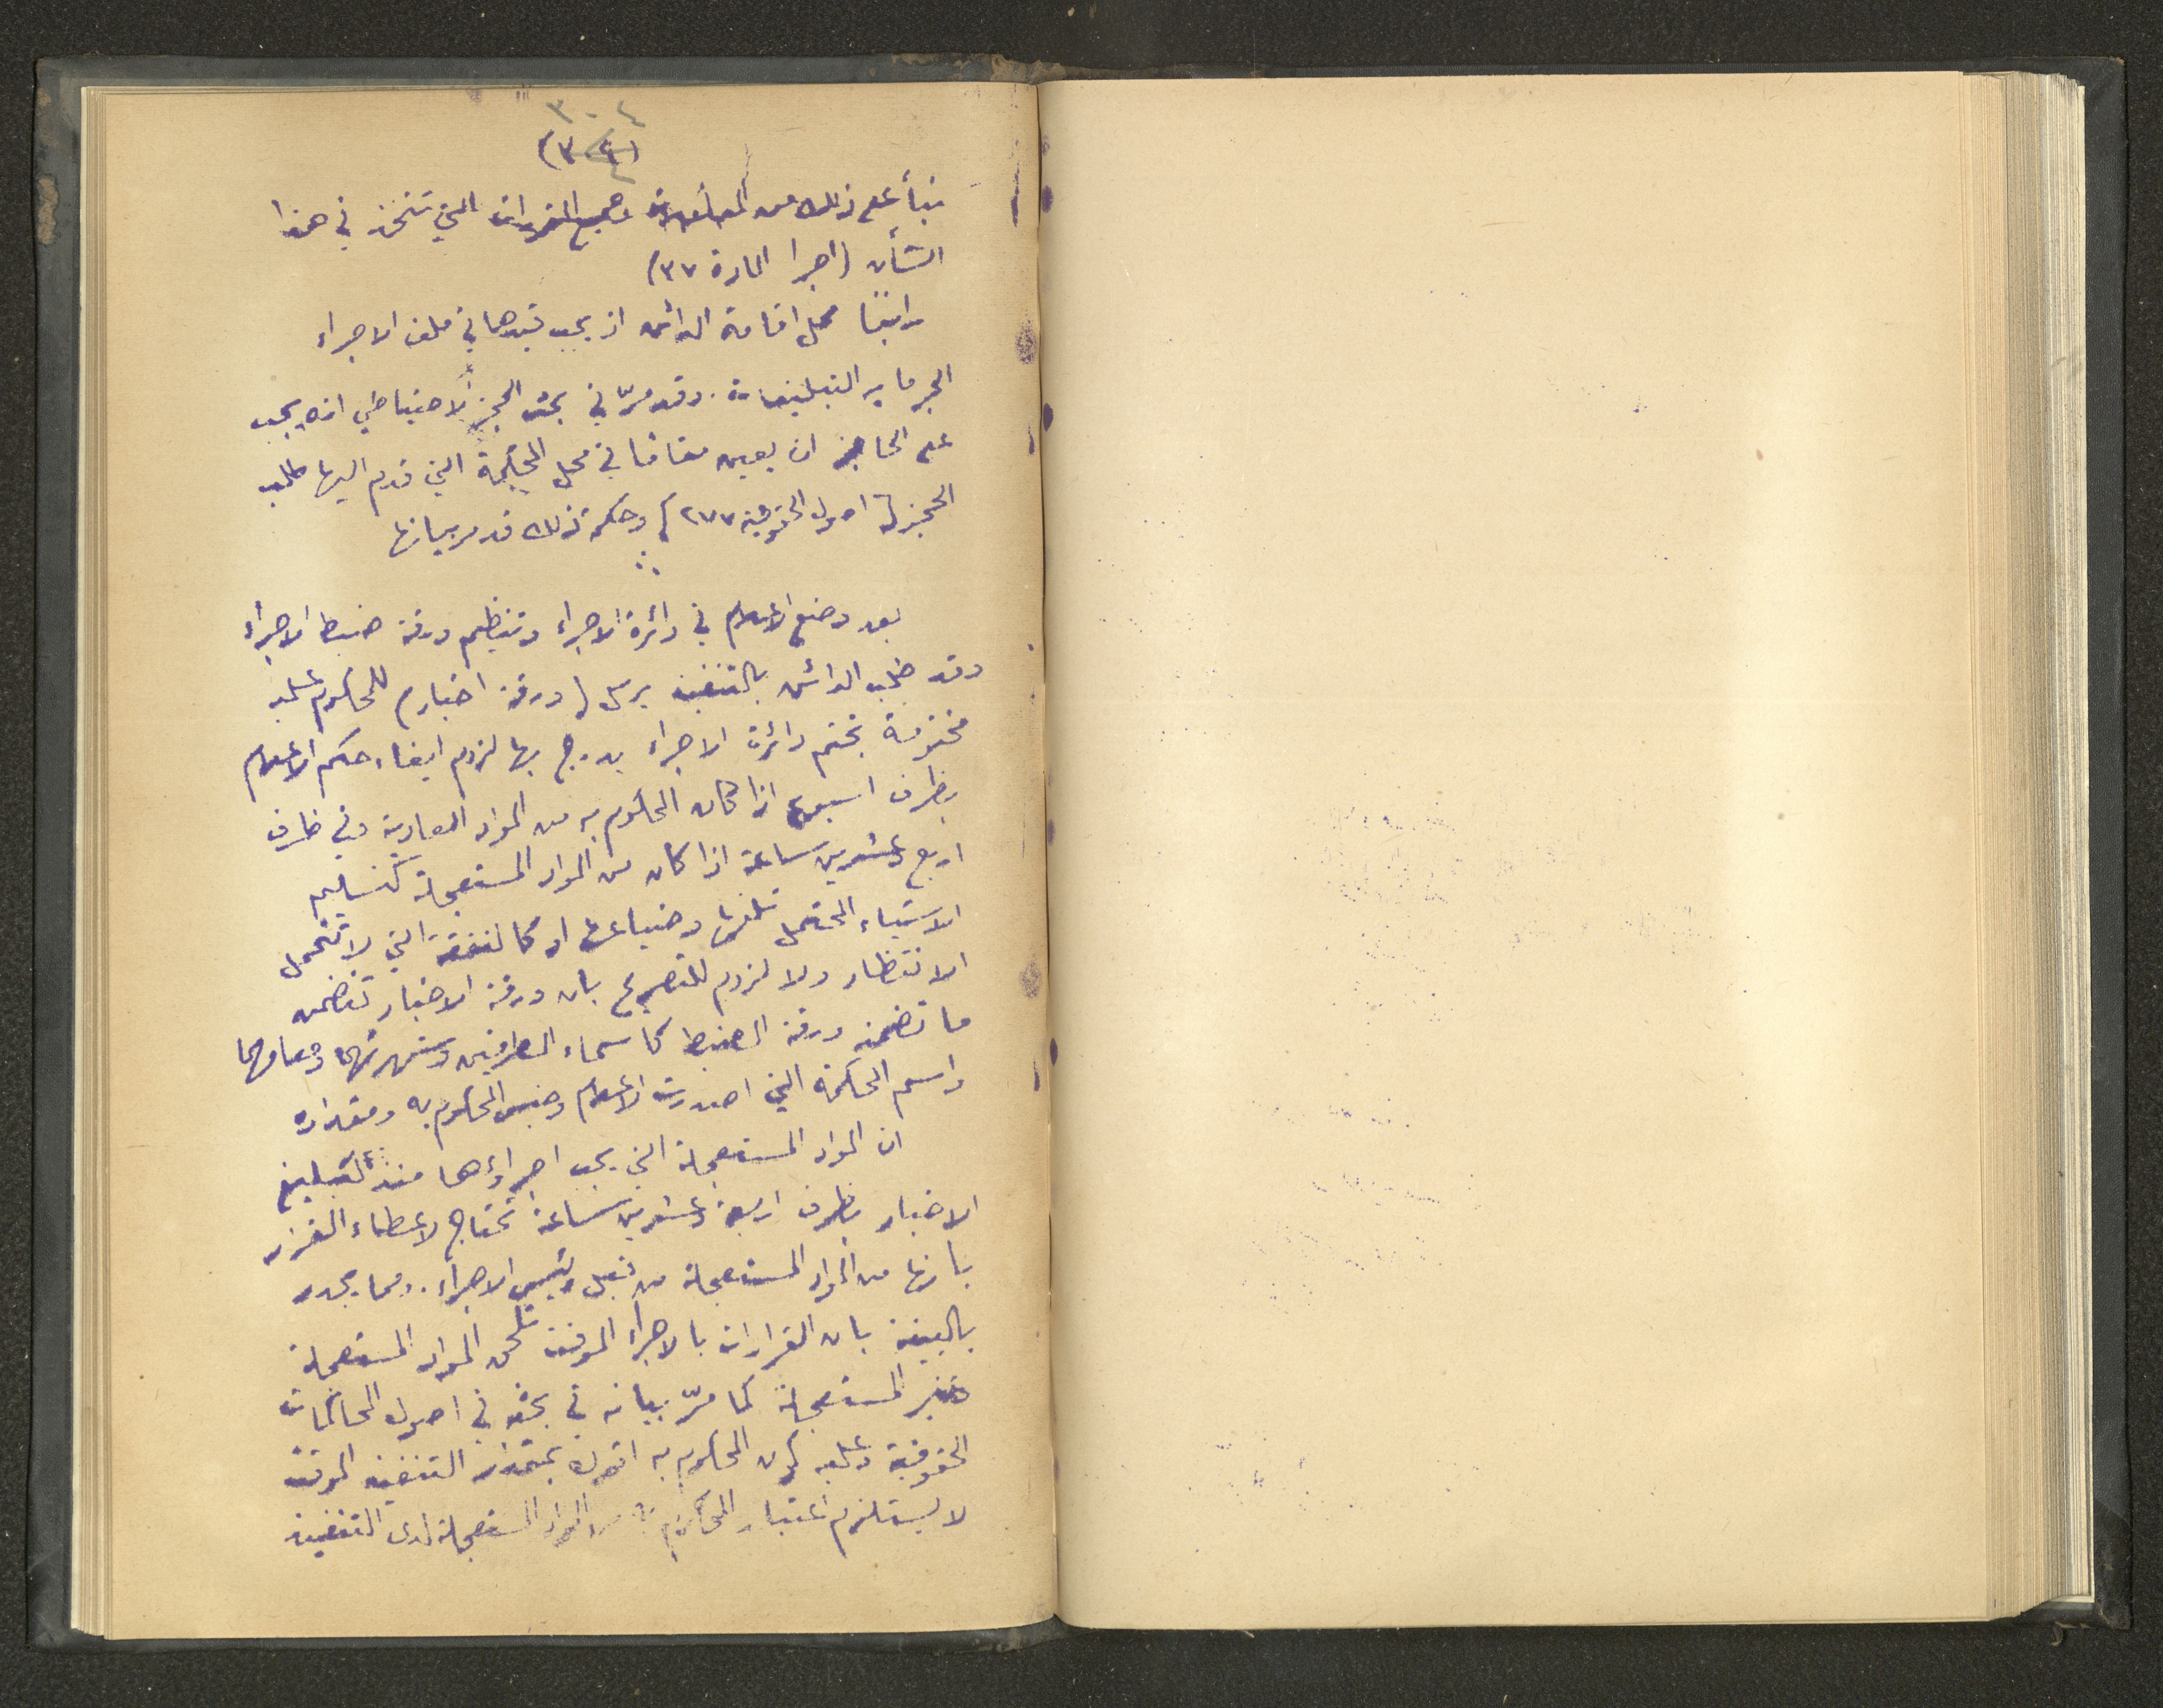 ٣٠٤
بنأ على ذلك من المأمورين وجميع القرارات التي تتخذ في هذا
الشأن (اجرا المادة ٣٧)
رابعًا محل اقامة الدائن اذ يجب قيدها في ملف الاجراء
التبليغات. وقد مرّ في بحث الحجز الاحتياطي انه يجب
على الحاجز ان يعين مقامًا في محل المحكمة التي قدم اليها طلب
الحجز (اصول الحقوقية ٢٧٧) وحكمة ذلك قد مر بيانها
بعد وضع الاعلام في دائرة الاجراء وتنظيم ورقة ضبط الاجراء
وقد طلب الدائن بالتنفيذ يرسل (ورقة اخبار) للمحكوم عليه
مختومة بختم دائرة الاجراء يدرج بها لزوم ايفاء حكم الاعلام
بظرف اسبوع اذا كان المحكوم به من المواد العادية وفي ظرف
اربع وعشرين ساعة اذا كان من المواد المستعجلة كتسليم
الاشياء المحتمل تلفها وضياعها او كالنفقة التي لا تتحمل
الانتظار ولا لزوم للتصريح بان ورقة الاخبار تتضمن
ما تضمنه ورقة الضبط كاسماء الطرفين وشهرتهما ومقامهما
واسم المحكمة التي اصدرت الاعلام وجنس المحكوم به ومقداره
ان المواد المستعجلة التي يجب اجراؤها منذ تبليغ
الاخبار بظرف اربعة وعشرين ساعة تحتاج لاعطاء القرار
بانها من المواد المستعجلة من قبل رئيس الاجراء. ومما يجدر
بالبينة بان القرارات بالاجراء الموقت تلحق المواد المستعجلة
وغير المستعجلة كما مرّ بيانه في بحثه في اصول المحاكمات
الحقوقية وعليه كون المحكوم به اقترن بـ التنفيذ الموقت
لا يستلزم اعتبار المحكوم به من المواد المستعجلة لدى التنفيذ